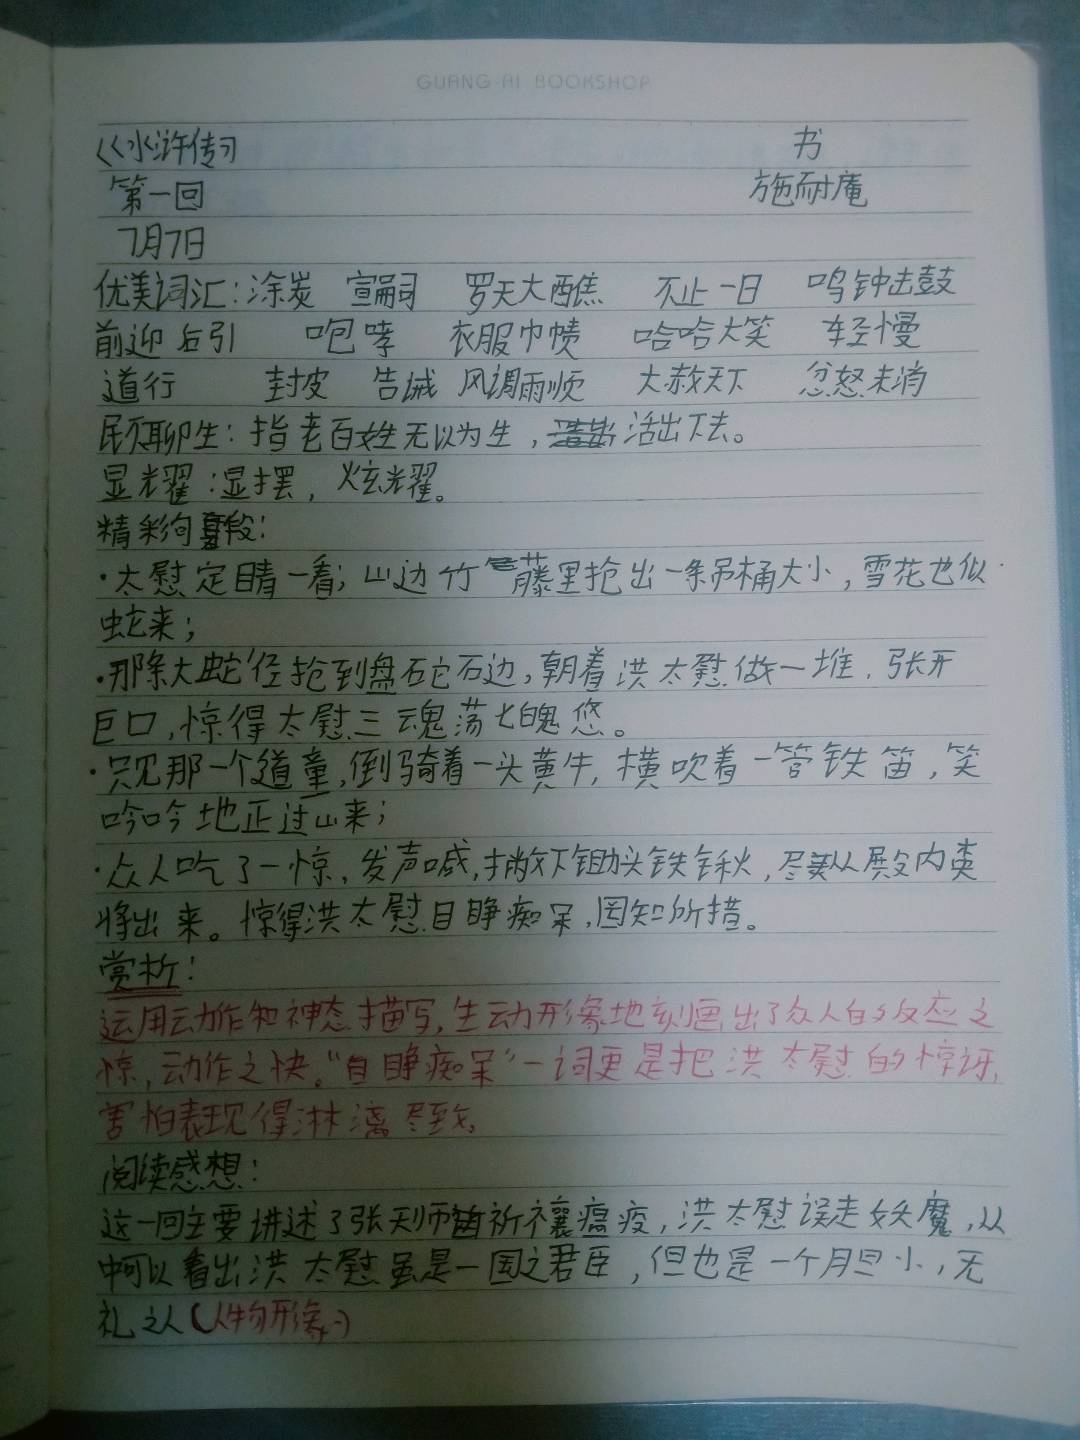 GUANG·AI BOOKSHOP
《水浒传》 书
第一回 施耐庵
7月7日
优美词汇：涂炭 宣嗣 罗天大醮 不止一日 鸣钟击鼓
前迎后引 咆哮 衣服巾帻 哈哈大笑 轻慢
道行 封皮 告诫 风调雨顺 大赦天下 忿怒未消
民不聊生：指老百姓无以为生，活出下去。
显耀：显摆，炫耀。
精彩句段：
·太慰定睛一看；山边竹藤里抢出一条吊桶大小，雪花也似
蛇来；
·那条大蛇径抢到盘砣石边，朝着洪太慰做一堆，张开
巨口，惊得太慰三魂荡七魄悠。
·只见那一个道童，倒骑着一头黄牛，横吹着一管铁笛，笑
吟吟地正过山来；
·众人吃了一惊，发声喊，撇下锄头铁锹，尽从殿内奔
将出来。惊得洪太慰目睁痴呆，罔知所措。
赏析：
运用动作和神态描写，生动形象地刻画出了众人的反应之
惊，动作之快。“目睁痴呆”一词更是把洪太慰的惊讶，
害怕表现得淋漓尽致。
阅读感想：
这一回主要讲述了张天师祈禳瘟疫，洪太慰误走妖魔，从
中可以看出洪太慰虽是一国之君臣，但也是一个胆小，无
礼之人（人物形象）